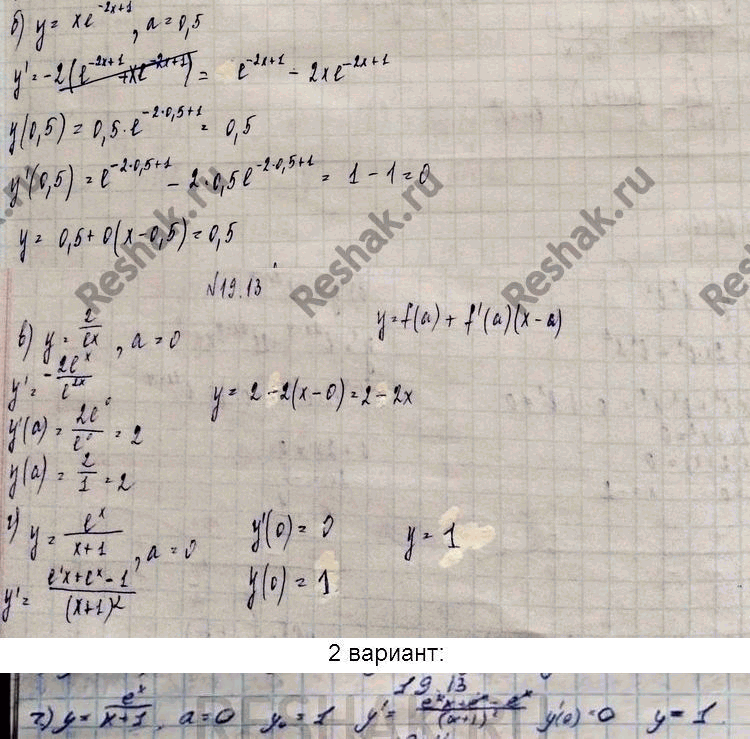 б) y = xe^{-2x+1}, a = 0,5
y' = -2(e^{-2x+1} + xe^{-2x+1}) = e^{-2x+1} - 2xe^{-2x+1}
y(0,5) = 0,5·e^{-2·0,5+1} = 0,5
y'(0,5) = e^{-2·0,5+1} - 2·0,5e^{-2·0,5+1} = 1 - 1 = 0
y = 0,5 + 0(x-0,5) = 0,5
№19.13
в) y = 2/e^x, a = 0
y = f(a) + f'(a)(x-a)
y' = -2e^x/e^{2x}
y = 2 - 2(x-0) = 2 - 2x
y'(a) = 2e^0/e^0 = 2
y(a) = 2/1 = 2
г) y = e^x/(x+1), a = 0
y'(0) = 0
y = 1
y' = (e^x x + e^x - 1)/(x+1)^2
y(0) = 1
2 вариант:
19.13
г) y = e^x/(x+1), a = 0 y_0 = 1 y' = (e^x x + e^x - e^x)/(x+1)^2 y'(0) = 0 y = 1.
Reshak.ru
Reshak.ru
Reshak.ru
RESHAK.RU